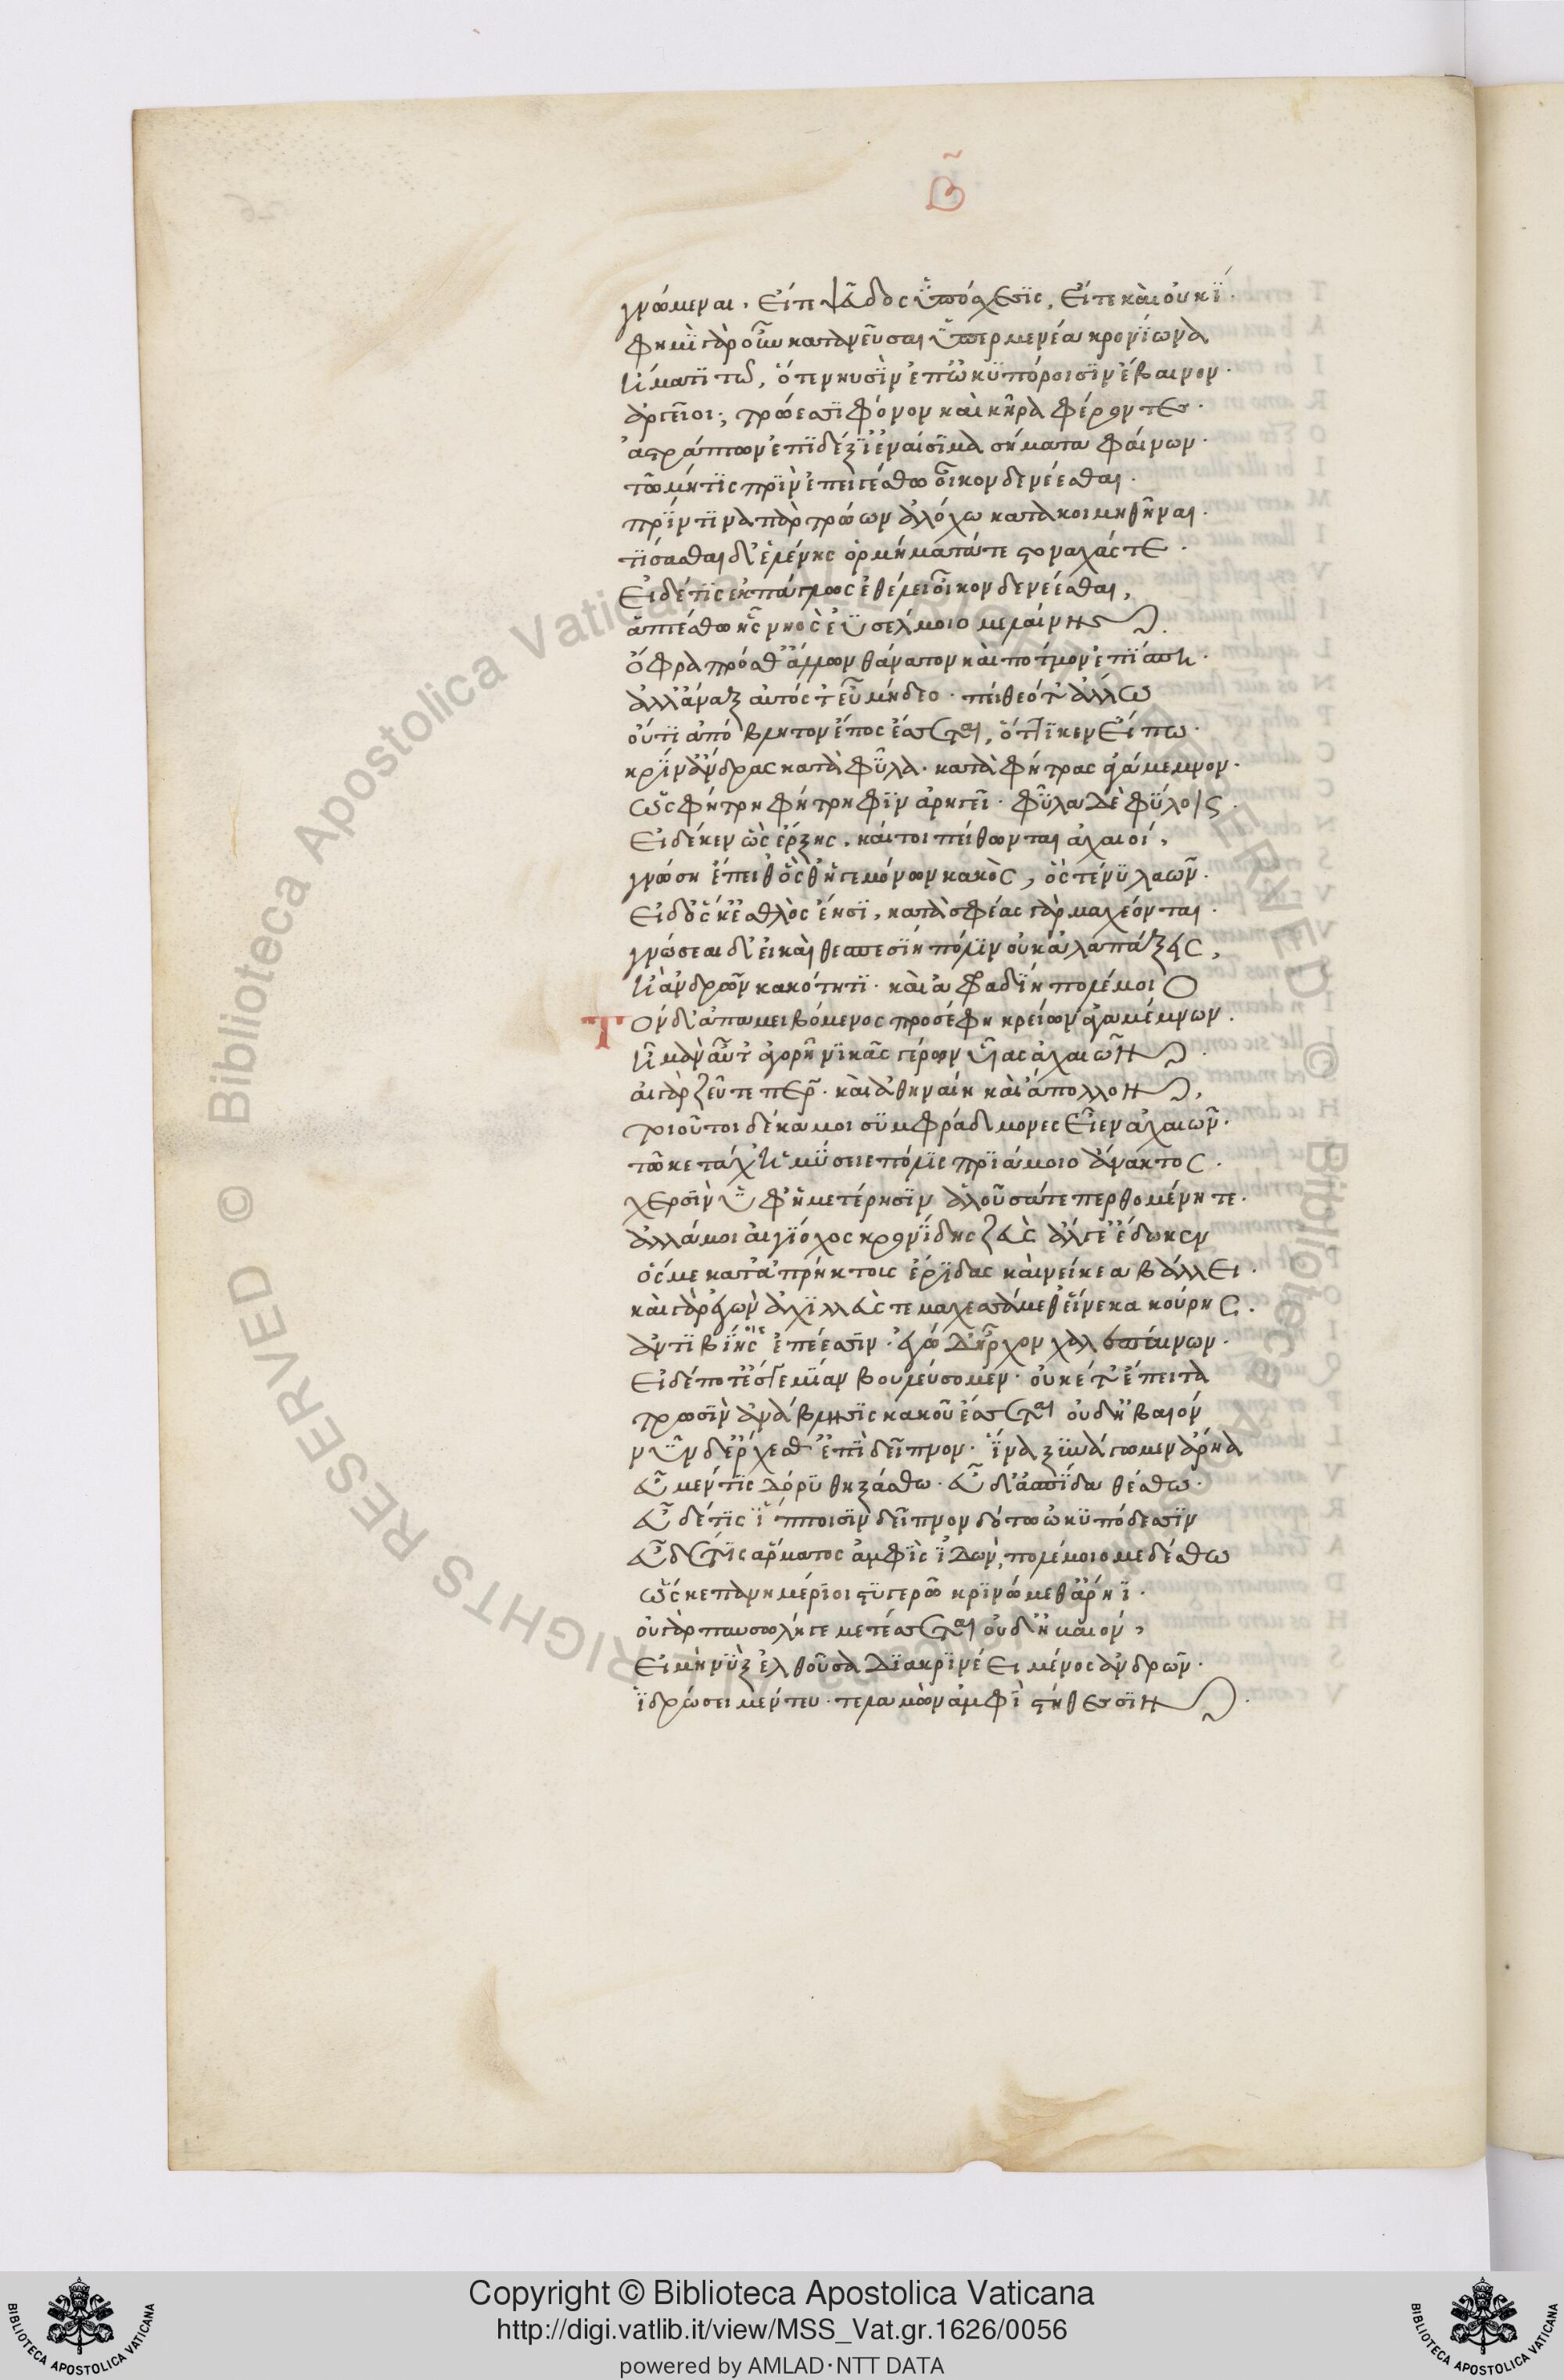 β̃
γνώμεναι. εἴτε ψεῦδος ὑπόσχεσις, εἴτε καὶ οὐκί.
φημὶ γὰρ οὖν κατανεῦσαι ὑπερμενέα κρονίωνα
ἤματι τῶ, ὅτε νηυσὶν ἐπ' ὠκυπόροισιν ἔβαινον.
ἀργεῖοι, τρώεσσι φόνον καὶ κῆρα φέροντες.
ἀστράπτων ἐπιδέξι' ἐναίσιμα σήματα φαίνων.
τῶ μήτις πρὶν ἐπειγέσθω οἶκον δὲ νέεσθαι.
πρίν τινα πὰρ τρώων ἀλόχω κατακοιμηθῆναι.
τίσασθαι δ' ἑλένης ὁρμήματά τε στοναχάς τε.
εἰ δέ τις ἐκπάγλως ἐθέλει οἶκον δὲ νέεσθαι,
ἁπτέσθω ἧς νηὸς ἐϋσέλμοιο μελαίνης.
ὄφρα πρόσθ' ἄλλων θάνατον καὶ πότμον ἐπίσπη.
ἀλλ' ἄναξ αὐτός τ' εὖ μήδεο. πείθεό τ' ἄλλω
οὔτι ἀπόβλητον ἔπος ἔσσεται, ὅττι κεν εἴπω.
κρῖν' ἄνδρας κατὰ φῦλα. κατὰ φήτρας ἀγάμεμνον.
ὡς φήτρη φήτρηφιν ἀρήγει. φῦλα δὲ φύλοις.
εἰ δέ κεν ὣς ἔρξης. καί τοι πείθωνται ἀχαιοί,
γνώση ἔπειθ' ὅς θ' ἡγεμόνων κακὸς, ὅς τέ νυ λαῶν.
εἰδ' ὅς κ' ἐσθλὸς ἔησι, κατὰ σφέας γὰρ μαχέονται.
γνώσεαι δ' εἰ καὶ θεσπεσίη πόλιν οὐκ ἀλαπάξεις,
ἢ ἀνδρῶν κακότητι. καὶ ἀφραδίη πολέμοιο
Τὸν δ' ἀπαμειβόμενος προσέφη κρείων ἀγαμέμνων.
ἦ μὰν αὖτ' ἀγορῆ νικᾶς γέρον υἷας ἀχαιῶν.
αἲ γὰρ ζεῦ τε πάτερ. καὶ ἀθηναίη καὶ ἄπολλον,
τοιοῦτοι δέκα μοι συμφράδμονες εἶεν ἀχαιῶν.
τῶ κε τάχ' ἠμύσειε πόλις πριάμοιο ἄνακτος.
χερσὶν ὑφ' ἡμετέρησιν ἁλοῦσά τε περθομένη τε.
ἀλλά μοι αἰγίοχος κρονίδης ζεὺς ἄλγε' ἔδωκεν
ὅς με κατ' ἀπρήκτοις ἔριδας καὶ νείκεα βάλλει.
καὶ γὰρ ἐγὼν ἀχιλλεὺς τε μαχεσάμεθ' εἵνεκα κούρης.
ἀντιβίοις ἐπέεσσιν. ἐγὼ δ' ἦρχον χαλεπαίνων.
εἰ δέ ποτ' ἔς γε μίαν βουλεύσομεν. οὐκέτ' ἔπειτα
τρωσὶν ἀνάβλησις κακοῦ ἔσσεται οὐδ' ἠβαιόν
νῦν δ' ἔρχεσθ' ἐπὶ δεῖπνον. ἵνα ξυνάγωμεν ἄρηα
εὖ μέν τις δόρυ θηξάσθω. εὖ δ' ἀσπίδα θέσθω.
εὖ δέ τις ἵπποισιν δεῖπνον δότω ὠκυπόδεσσιν
εὖ δέ τις ἅρματος ἀμφὶς ἰδὼν, πολέμοιο μεδέσθω
ὥς κε πανημέριοι στυγερῶ κρινώμεθ' ἄρηι.
οὐ γὰρ παυσωλή γε μετέσσεται οὐδ' ἠβαιόν,
εἰ μὴ νὺξ ἐλθοῦσα διακρινέει μένος ἀνδρῶν.
ἱδρώσει μέν τευ. τελαμὼν ἀμφὶ στήθεσσιν.
Copyright © Biblioteca Apostolica Vaticana
http://digi.vatlib.it/view/MSS_Vat.gr.1626/0056
powered by AMLAD·NTT DATA